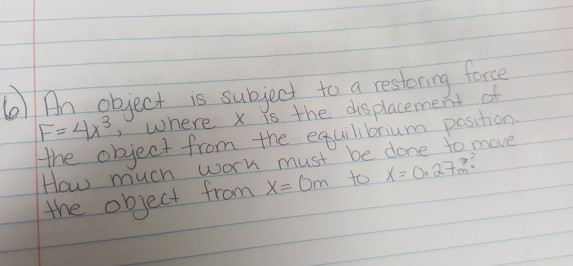 6) An object is subject to a restoring force
F=4x³, where x is the displacement of
the object from the equilibrium position.
How much work must be done to move
the object from x=0m to x=0.27m?